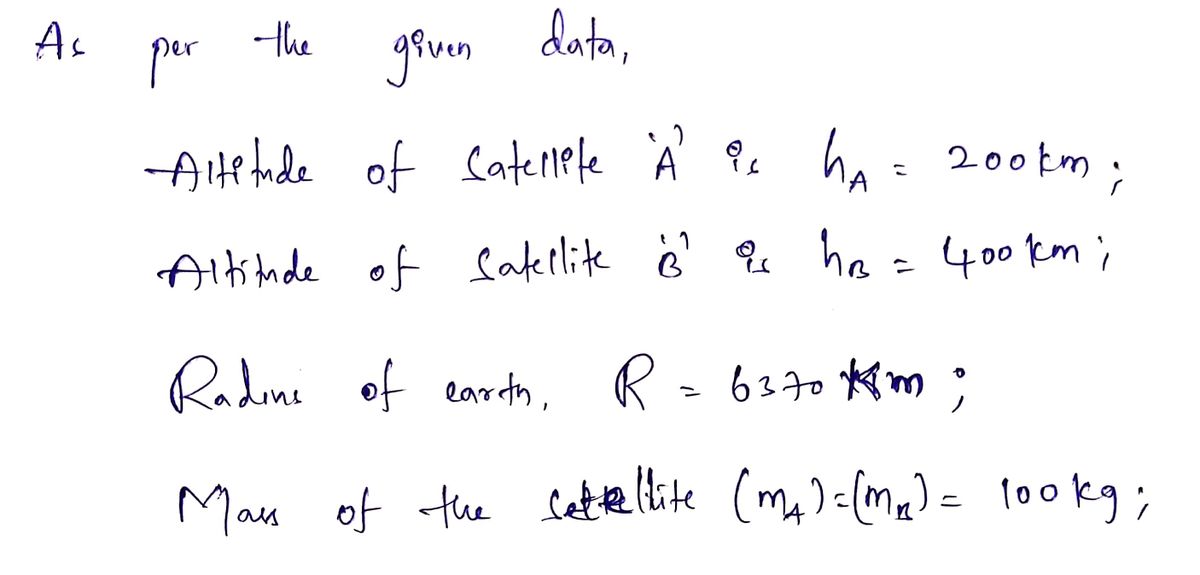 As per the given data,
Altitude of Satellite 'A' is hA = 200km ;
Altitude of Satellite 'B' is hB = 400 km ;
Radius of earth, R = 6370 Km ;
Mass of the satellite (mA) = (mB) = 100 kg ;